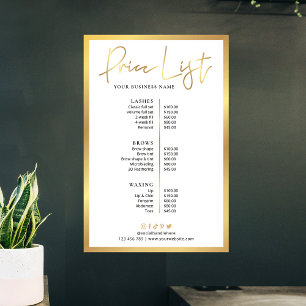 Price List
YOUR BUSINESS NAME
LASHES
Classic full set $100.00
Volume full set $150.00
2-week fill $60.00
4-week fill $80.00
Removal $45.00
BROWS
Brow shape $100.00
Brow tint $150.00
Brow shape & tint $60.00
Microblading $80.00
3D Feathering $45.00
WAXING
Lip $100.00
Lip & Chin $150.00
Forearm $60.00
Abdomen $80.00
Toes $45.00
@socialhandlehere
123 456 789 | www.yourwebsite.com